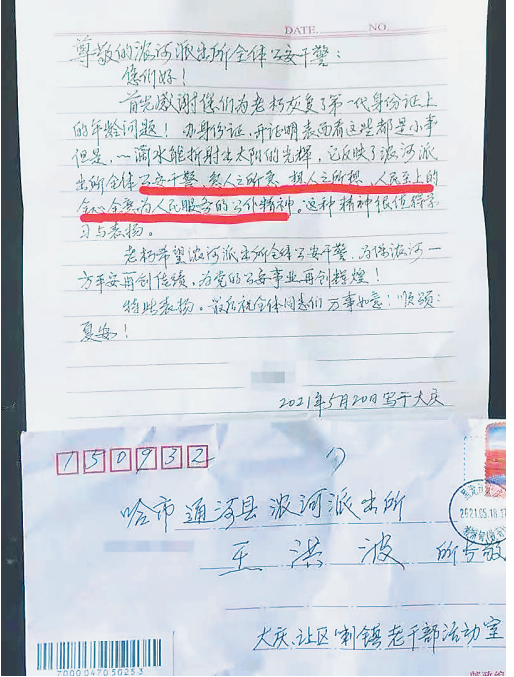 DATE. NO.
尊敬的浓河派出所全体公安干警：
您们好！
首先感谢您们为老朽恢复了第一代身份证上
的年龄问题！办身份证、开证明表面看这些都是小事
但是，一滴水能折射出太阳的光辉，它反映了浓河派
出所全体公安干警，急人之所急，想人之所想，人民至上的
全心全意为人民服务的公仆精神。这种精神很值得学
习与表扬。
老朽希望浓河派出所全体公安干警，为保浓河一
方平安再创佳绩，为党的公安事业再创辉煌！
特此表扬。最后祝全体同志们万事如意！顺颂：
夏安！
2021年5月20日写于大庆
150932
哈市通河县浓河派出所
王洪波 所长
2021.05.
大庆让区喇镇老干部活动室
7000047050253